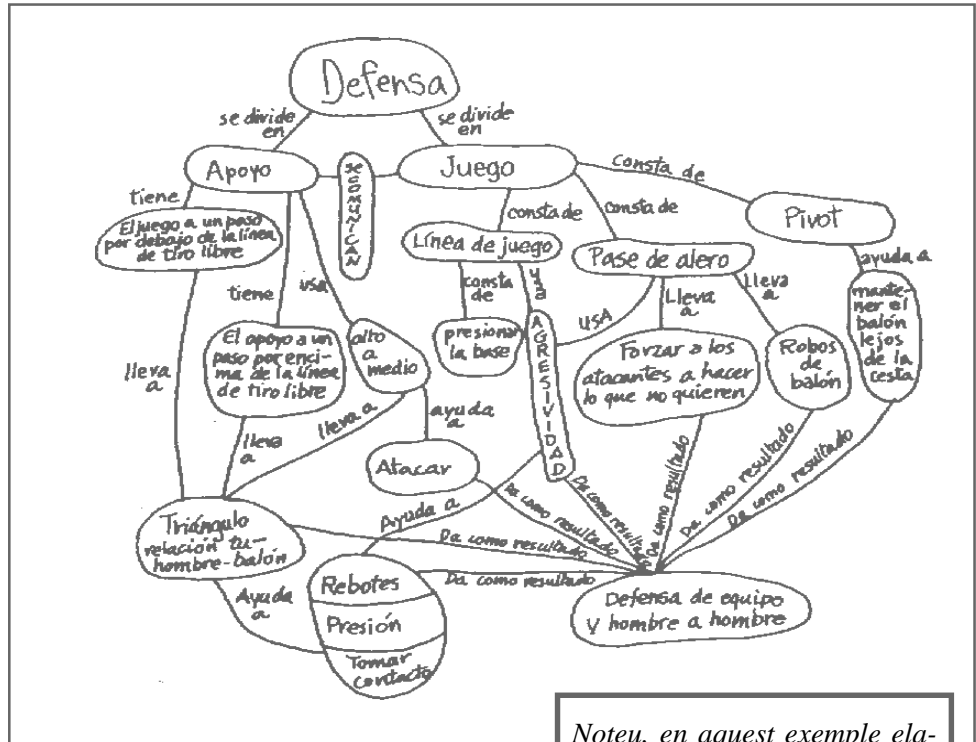 Defensa
se divide
en
se divide
en
Apoyo
SE COMUNICAN
Juego
consta de
Pivot
tiene
El juego a un paso
por debajo de la línea
de tiro libre
tiene
usa
consta de
consta de
Línea de juego
Pase de alero
ayuda a
consta
de
usa
AGRESIVIDAD
USA
Lleva
a
Lleva
a
mante-
ner el
balón
lejos
de la
cesta
presionar
la base
El apoyo a un
paso por enci-
ma de la línea
de tiro libre
alto
a
medio
Forzar a los
atacantes a hacer
lo que no quieren
Robos
de
balón
lleva
a
lleva
a
lleva a
ayuda
a
Atacar
Ayuda a
Da como resultado
Da como resultado
Da como resultado
Da como resultado
Da como resultado
Da como resultado
Triángulo
relación tu-
hombre-balón
Ayuda
a
Rebotes
Presión
Tomar
contacto
Da como resultado
Defensa de equipo
y hombre a hombre
Noteu, en aquest exemple ela-